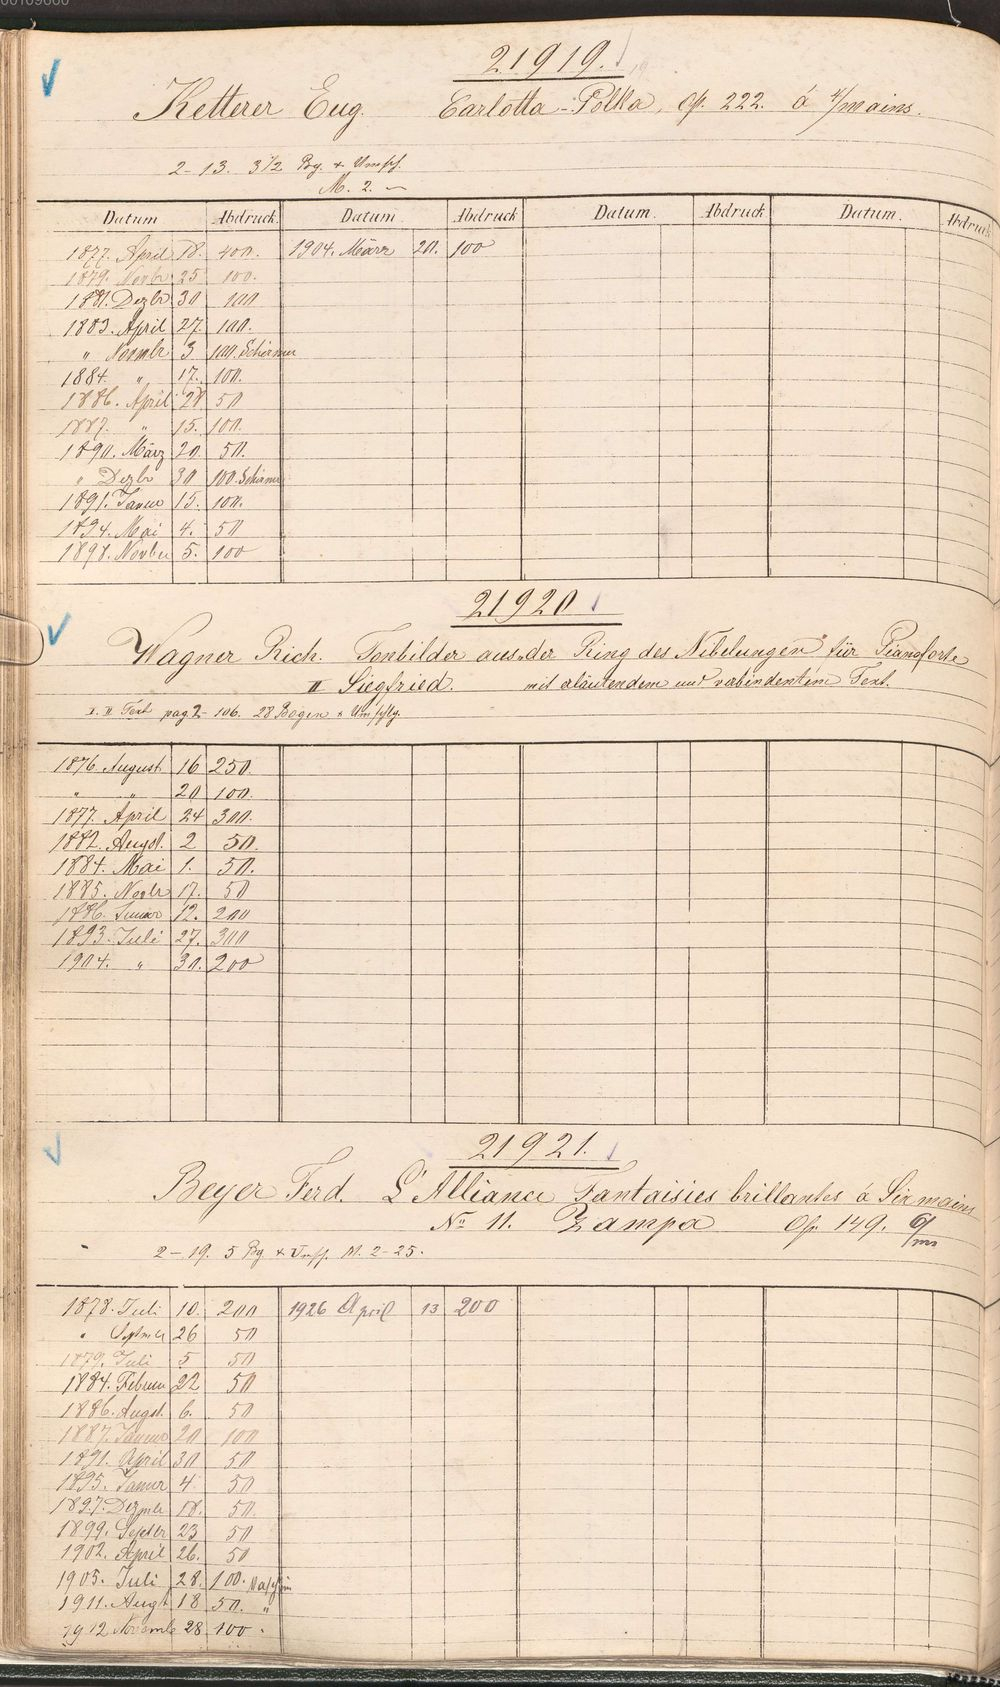 00109600
21919.
Ketterer Eug. Carlotta-Polka, Op. 222. à 4/mains.
2-13. 3 1/2 Bg. + Umschl.
M. 2. –
Datum Abdruck. Datum. Abdruck Datum. Abdruck Datum. Abdruck
1877. April 18. 400. 1904. März 20. 100
1879. Novbr 25 100.
1881. Dezbr 30 100
1883. April 27. 100.
" Novmbr 3 100. Schirmer
1884. " 17. 100.
1886. April 28 50
1887. " 15. 100.
1890. März 20. 50.
" Dezbr 30 100. Schirmer
1891. Januar 15. 100.
1894. Mai 4. 50
1898. Novbr 5. 100
21920
Wagner Rich. Tonbilder aus "der Ring des Nibelungen" für Pianoforte
II Siegfried. mit erläutendem und verbindentem Text.
I. II Text pag. 2-106. 28 Bogen + Umschlg.
1876. August 16 250.
" " 20 100.
1877. April 24 300.
1882. Augst. 2 50.
1884. Mai 1. 50.
1885. Novbr 17. 50
1886. Januar 12. 200
1893. Juli 27. 300
1904. " 30. 200
21921.
Beyer Ferd. L'Alliance Fantaisies brillantes à Six mains
No 11. Zampa Op. 149. 6/ms
2-19. 5 Bg + Umschl. M. 2-25.
1878. Juli 10. 200 1926 April 13 200
" Septmbr 26 50
1879. Juli 5 50
1884. Februar 22 50
1886. Augst. 6. 50
1887. Januar 20 100
1891. April 30 50
1895. Januar 4 50
1897. Dezmbr 18. 50.
1899. Septbr 23 50
1902. April 26. 50
1905. Juli 28. 100. Maschin
1911. Augt 18 50. "
1912 Novembr 28 100.